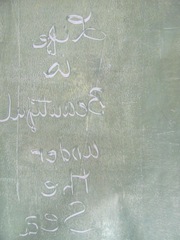 Life
is
Beautiful
under
the
Sea